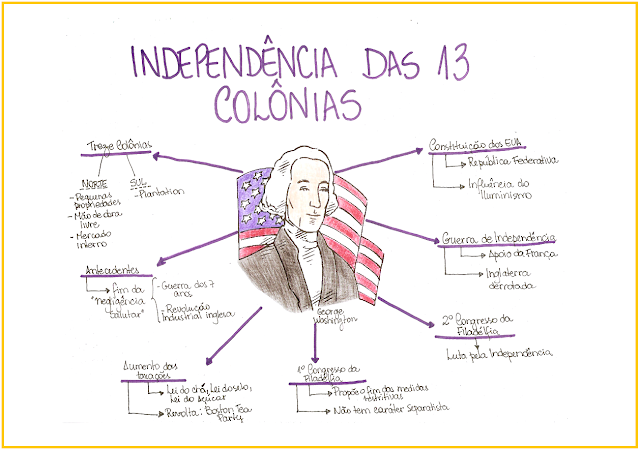 INDEPENDÊNCIA DAS 13
COLÔNIAS
Treze Colônias
NORTE
- Pequenas
propriedades
- Mão de obra
livre
- Mercado
interno
SUL
- Plantation
Antecedentes
Fim da
"negligência
salutar"
- Guerra dos 7
anos
- Revolução
Industrial inglesa
Aumento das
taxações
Lei do chá, Lei do selo,
Lei do açúcar
Revolta: Boston Tea
Party
George
Washington
1º Congresso da
Filadélfia
Propõe o fim das medidas
restritivas
Não tem caráter separatista
2º Congresso da
Filadélfia
Luta pela Independência
Guerra de Independência
Apoio da França
Inglaterra
derrotada
Constituição dos EUA
República Federativa
Influência do
Iluminismo